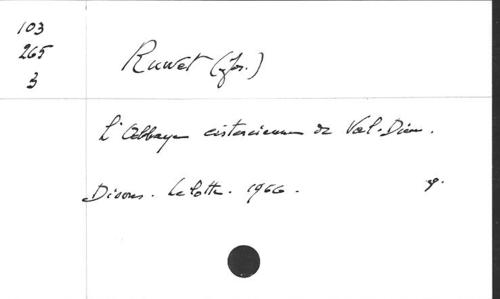 103
265
3
Ruwet (Jos.)
L'Abbaye cistercienne de Val-Dieu.
Disons. Lelotte. 1966.